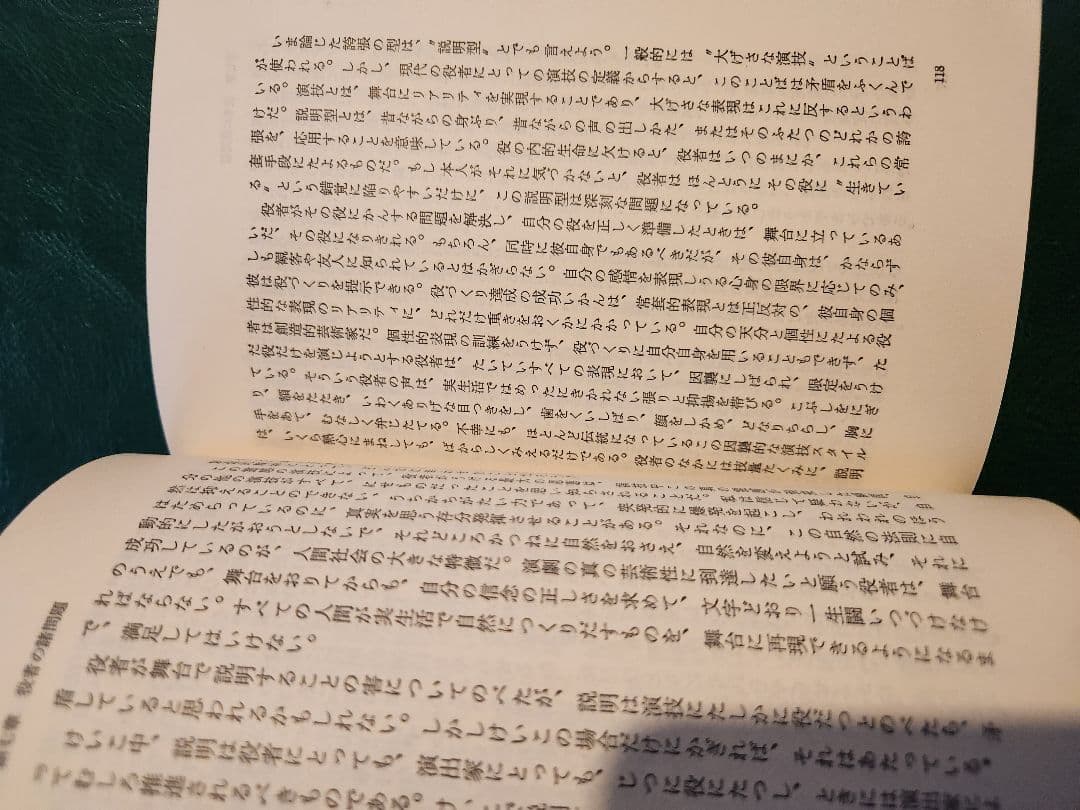 118
いま論じた誇張の型は、〝説明型〟とでも言えよう。一般的には〝大げさな演技〟ということば
が使われる。しかし、現代の役者にとっての演技の定義からすると、このことばは矛盾をふくんで
いる。演技とは、舞台にリアリティを実現することであり、大げさな表現はこれに反するというわ
けだ。説明型とは、昔ながらの身ぶり、昔ながらの声の出しかた、またはそのふたつのどれかの誇
張を、応用することを意味している。役の内的生命に欠けると、役者はいつのまにか、これらの常
套手段にたよるものだ。もし本人がそれに気づかないと、役者はほんとうにその役に〝生きてい
る〟という錯覚に陥りやすいだけに、この説明型は深刻な問題になっている。
役者がその役にかんする問題を解決し、自分の役を正しく準備したときは、舞台に立っているあ
いだ、その役になりきれる。もちろん、同時に彼自身でもあるべきだが、その彼自身は、かならず
しも観客や友人に知られているとはかぎらない。自分の感情を表現しうる心身の限界に応じてのみ、
彼は役づくりを提示できる。役づくり達成の成功いかんは、常套的表現とは正反対の、彼自身の個
性的な表現のリアリティに、どれだけ重きをおくかにかかっている。自分の天分と個性にたよる役
者は創造的芸術家だ。個性的表現の訓練をうけず、役づくりに自分自身を用いることもできず、た
だ役だけを演じようとする役者は、たいていすべての表現において、因襲にしばられ、限定をうけ
ている。そういう役者の声は、実生活ではめったにきかれない張りと抑揚を帯びる。こぶしをにぎ
り、額をたたき、いわくありげな目つきをし、歯をくいしばり、顔をしかめ、どなりちらし、胸に
手をあて、むなしく弁じたてる。不幸にも、ほとんど伝統になっているこの因襲的な演技スタイル
は、いくら熱心にまねしても、ばからしくみえるだけである。役者のなかには技巧たくみに、説明
然に抑えることのできない、うちかちがたい力であって、
はためらっているのに、真実を思う存分発揮させることがある。それなのに、この自然の法則に自
動的にしたがおうとしないで、それどころかつねに自然をおさえ、自然を変えようと試み、それに
成功しているのが、人間社会の大きな特徴だ。演劇の真の芸術性に到達したいと願う役者は、舞台
のうえでも、舞台をおりてからも、自分の信念の正しさを求めて、文字どおり一生闘いつづけなけ
ればならない。すべての人間が実生活で自然につくりだすものを、舞台に再現できるようになるま
で、満足してはいけない。
役者が舞台で説明することの害についてのべたが、説明は演技にたしかに役だつとのべたら、矛
盾していると思われるかもしれない。しかしけいこの場合だけにかぎれば、それはあたっている。
けいこ中、説明は役者にとっても、演出家にとっても、じつに役にたつし、ときには演出家によ
ってむしろ推進されるべきものである。
役者の諸問題